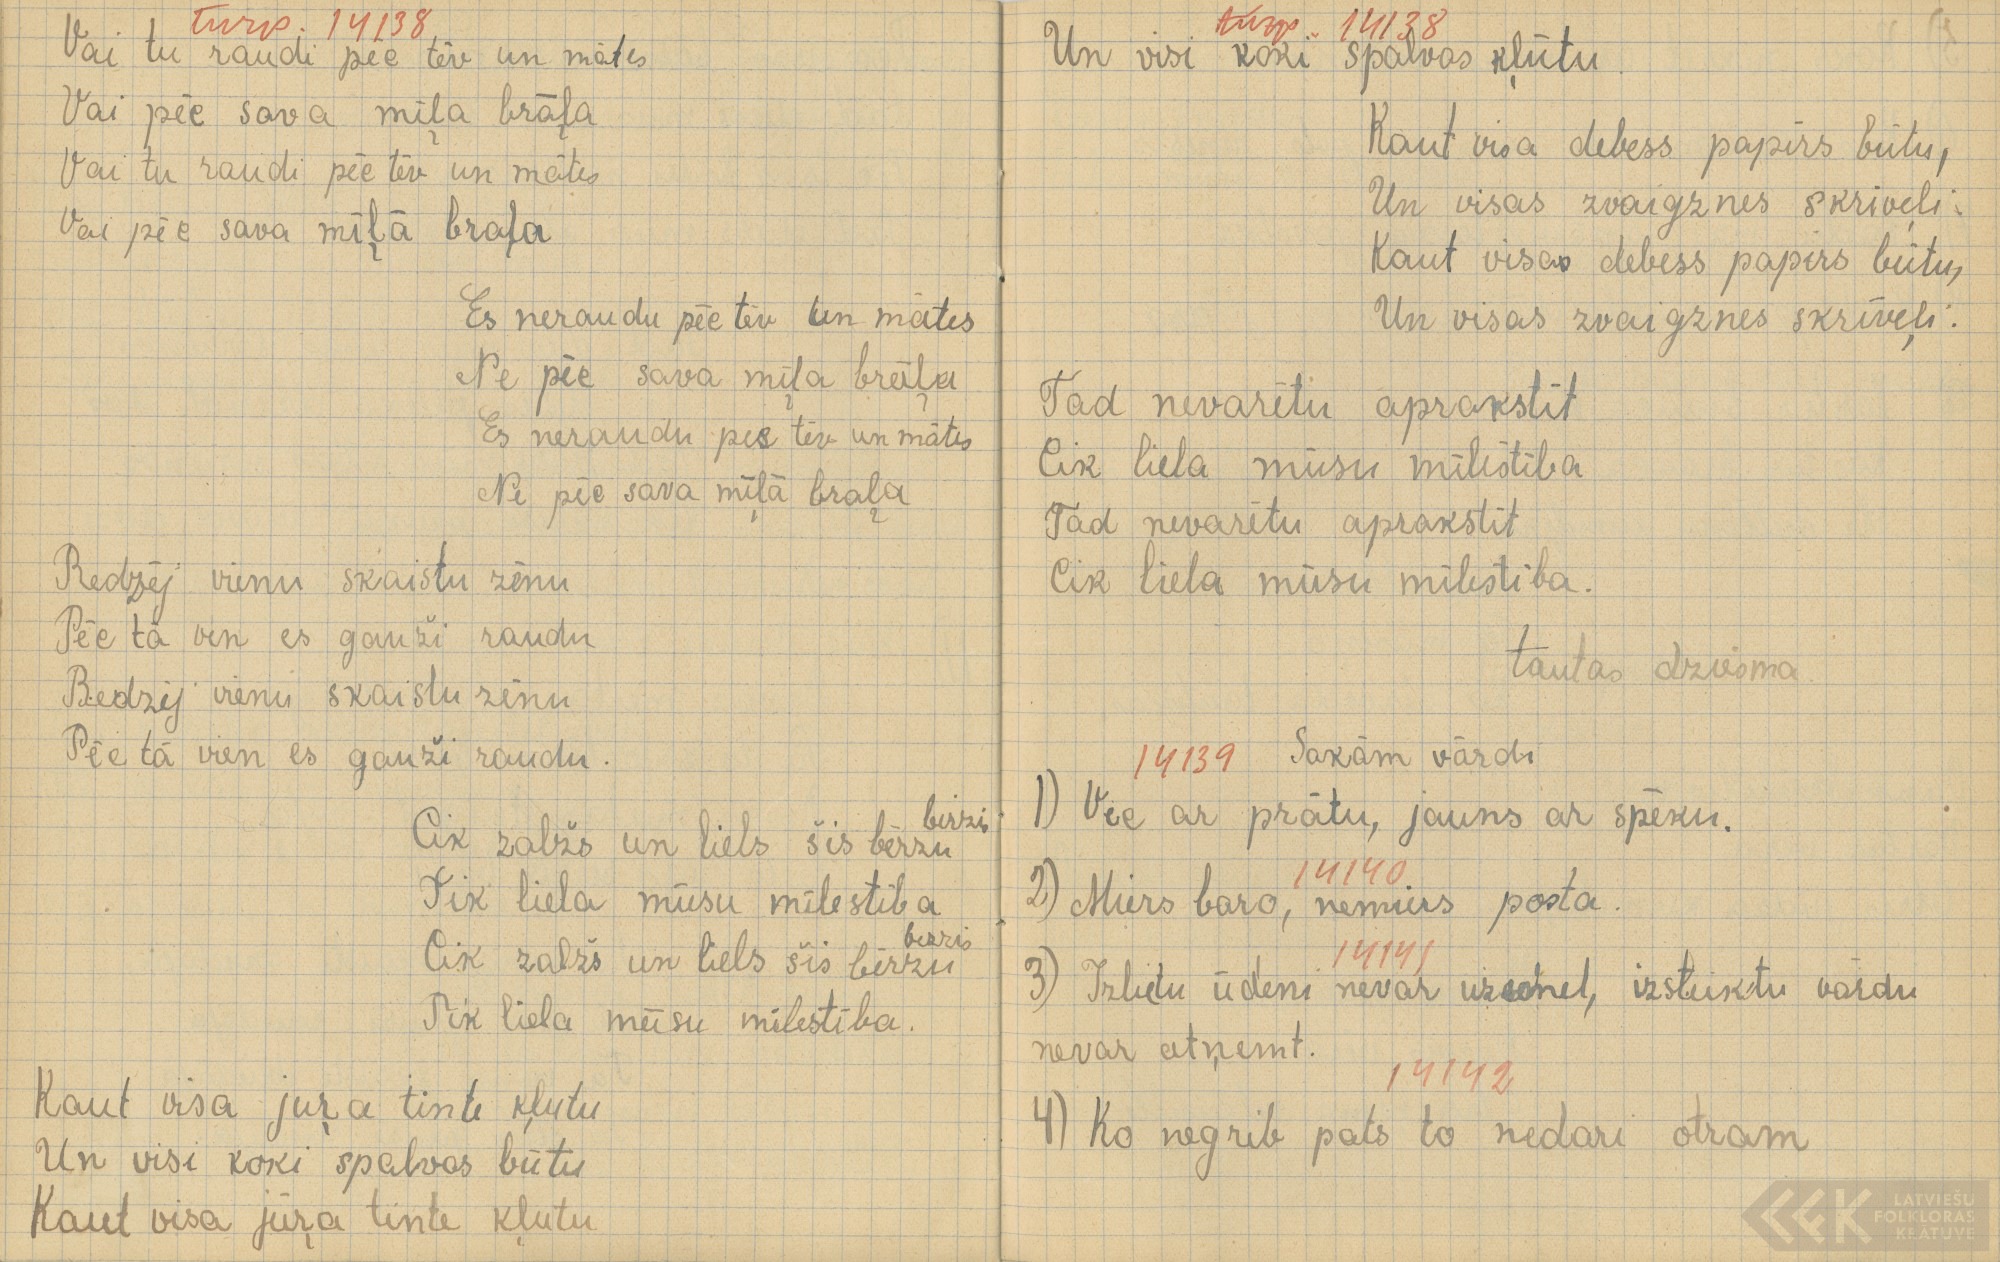 turp. 14138
Vai tu raudi pēc tēv un mātes
Vai pēc sava mīļa brāļa
Vai tu raudi pēc tēv un mātes
Vai pēc sava mīļā braļa
Es neraudu pēc tēv un mātes
Ne pēc sava mīļa brāļa
Es neraudu pec tēv un mātes
Ne pēc sava mīļā braļa
Redzēj vienu skaistu zēnu
Pēc tā vien es gauži raudu
Redzēj vienu skaistu zēnu
Pēc tā vien es gauži raudu.
birzis
Cik zalžs un liels šis bērzu
Tik liela mūsu mīlestība
berzis
Cik zalžs un liels šis bērzu
Tik liela mūsu mīlestība.
Kaut visa juŗa tinte kļutu
Un visi koki spalvas būtu
Kaut visa jūŗa tinte kļutu
turp. 14138
Un visi koki spalvas kļūtu
Kaut visa debess papīrs būtu,
Un visas zvaigznes skrīveļi.
Kaut visas debess papirs būtu,
Un visas zvaigznes skrīveļi.
Tad nevarētu aprakstīt
Cik liela mūsu mīlestība
Tad nevarētu aprakstīt
Cik liela mūsu mīlestība.
tautas dziesma
14139 Sakām vārdi
1) Vec ar prātu, jauns ar spēku.
14140
2) Miers baro, nemiers posta.
14141
3) Izlietu ūdeni nevar uzsmel, izteiktu vārdu
nevar atņemt.
14142
4) Ko negrib pats to nedari otram
LATVIEŠU
FOLKLORAS
KRĀTUVE